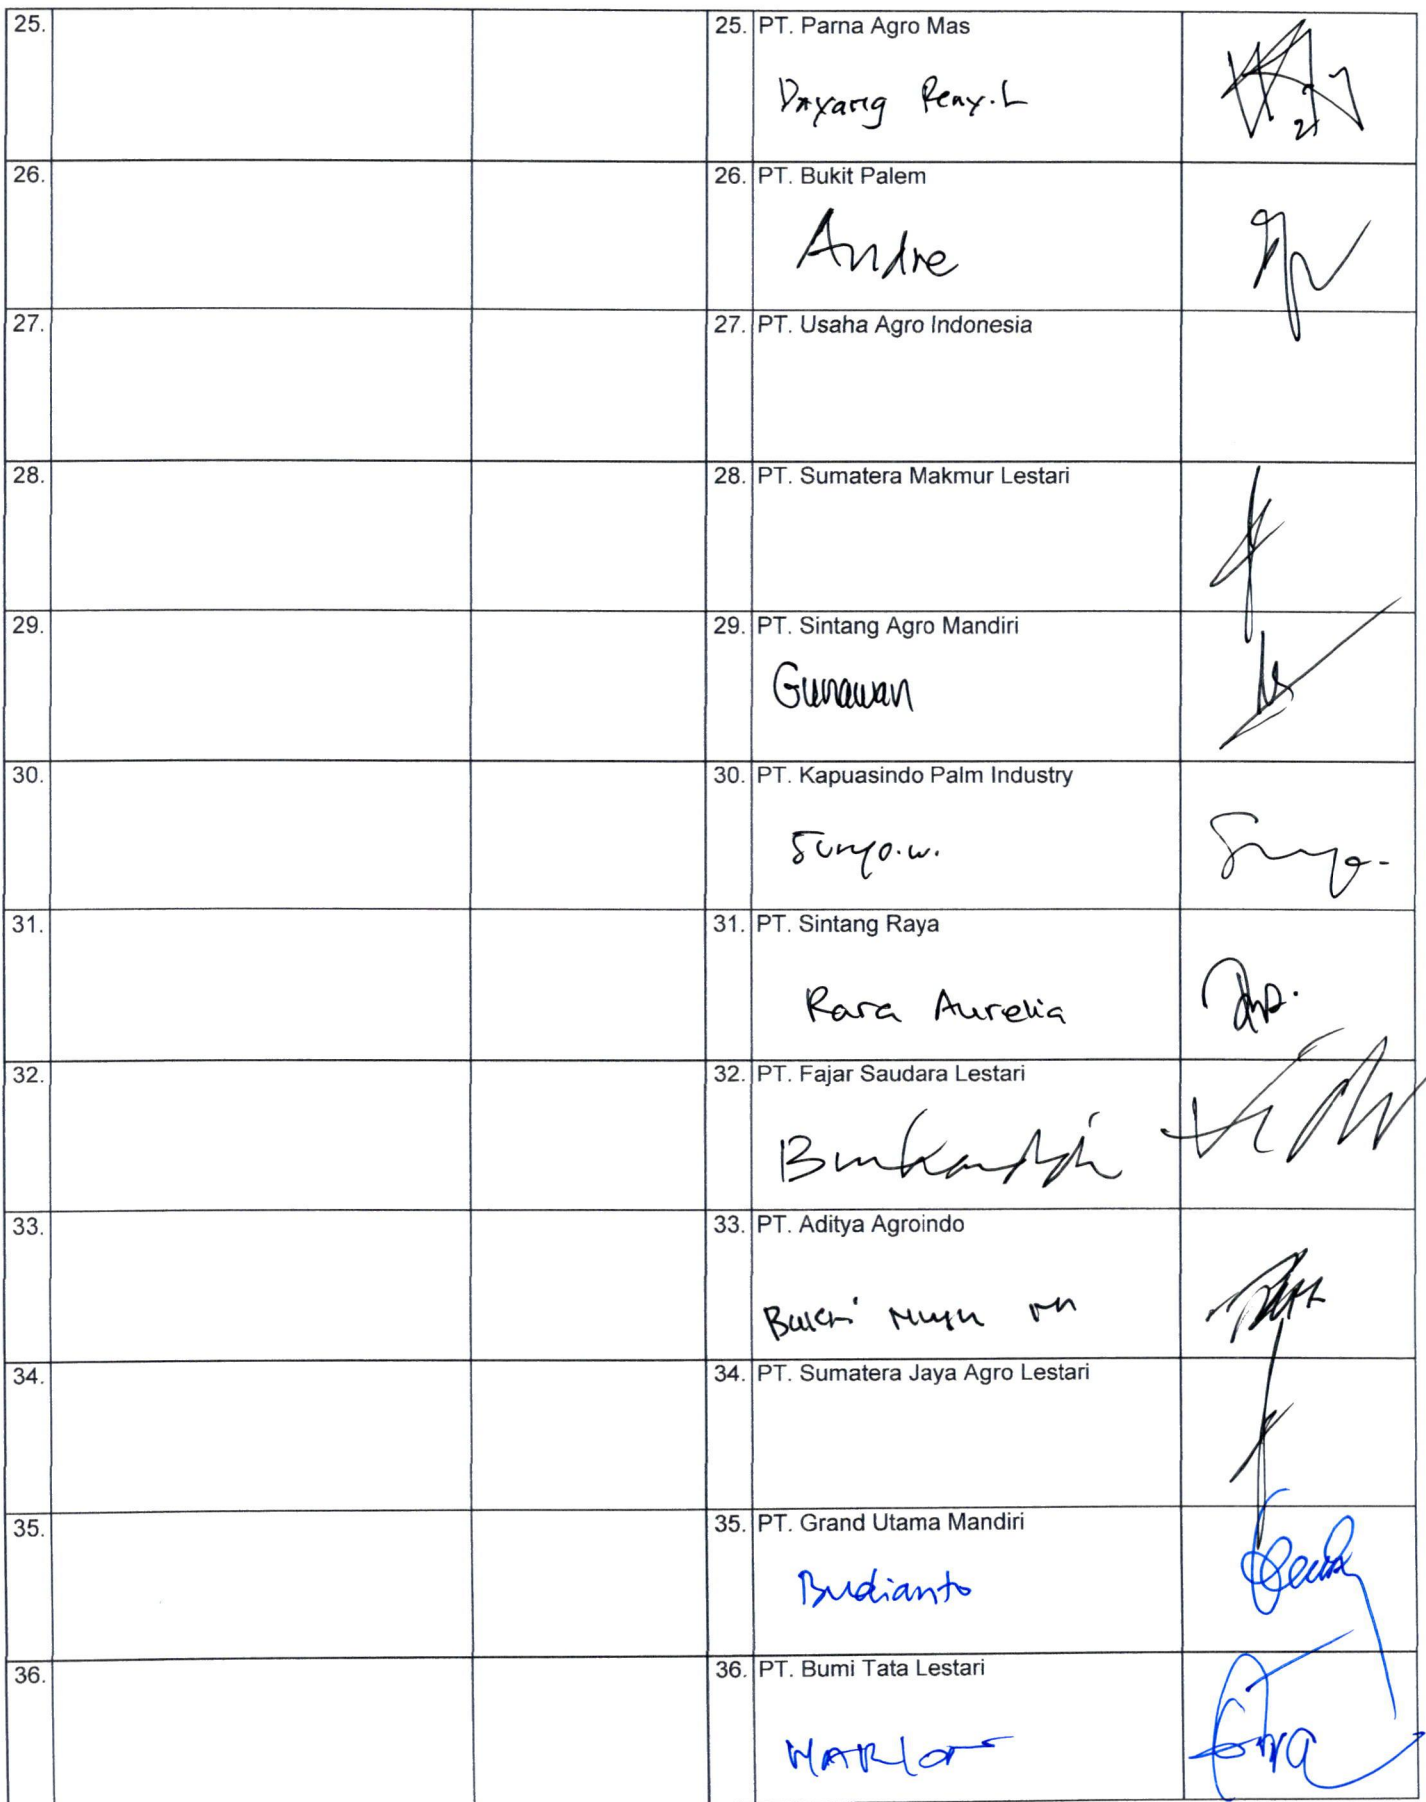 25. 25. PT. Parna Agro Mas
Dayang Reny.L
26. 26. PT. Bukit Palem
Andre
27. 27. PT. Usaha Agro Indonesia
28. 28. PT. Sumatera Makmur Lestari
29. 29. PT. Sintang Agro Mandiri
Gunawan
30. 30. PT. Kapuasindo Palm Industry
Suryo.w.
31. 31. PT. Sintang Raya
Rara Aurelia
32. 32. PT. Fajar Saudara Lestari
33. 33. PT. Aditya Agroindo
34. 34. PT. Sumatera Jaya Agro Lestari
35. 35. PT. Grand Utama Mandiri
Budianto
36. 36. PT. Bumi Tata Lestari